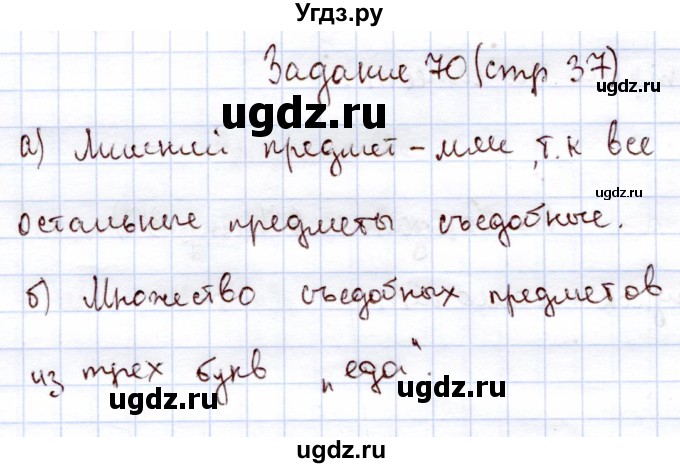 Угдз.ру
Задание 70 (стр 37)
ugdz.ru
ugdz.ru
а) Лишний предмет - мяч, т.к все
ugdz.ru
остальные предметы съедобные.
ugdz.ru
б) Множество съедобных предметов
из трех букв „еда".
ugdz.ru
ugdz.ru
ugdz.ru